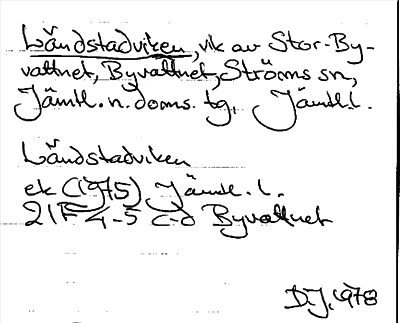 Ländstadviken, vik av Stor-By-
vattnet, Byvattnet, Ströms sn,
Jämtl. n. doms. tg, Jämtl. l.
Ländstadviken
ek (1975) Jämtl. l.
21F 4-5 c-d Byvattnet
D.J. 1978